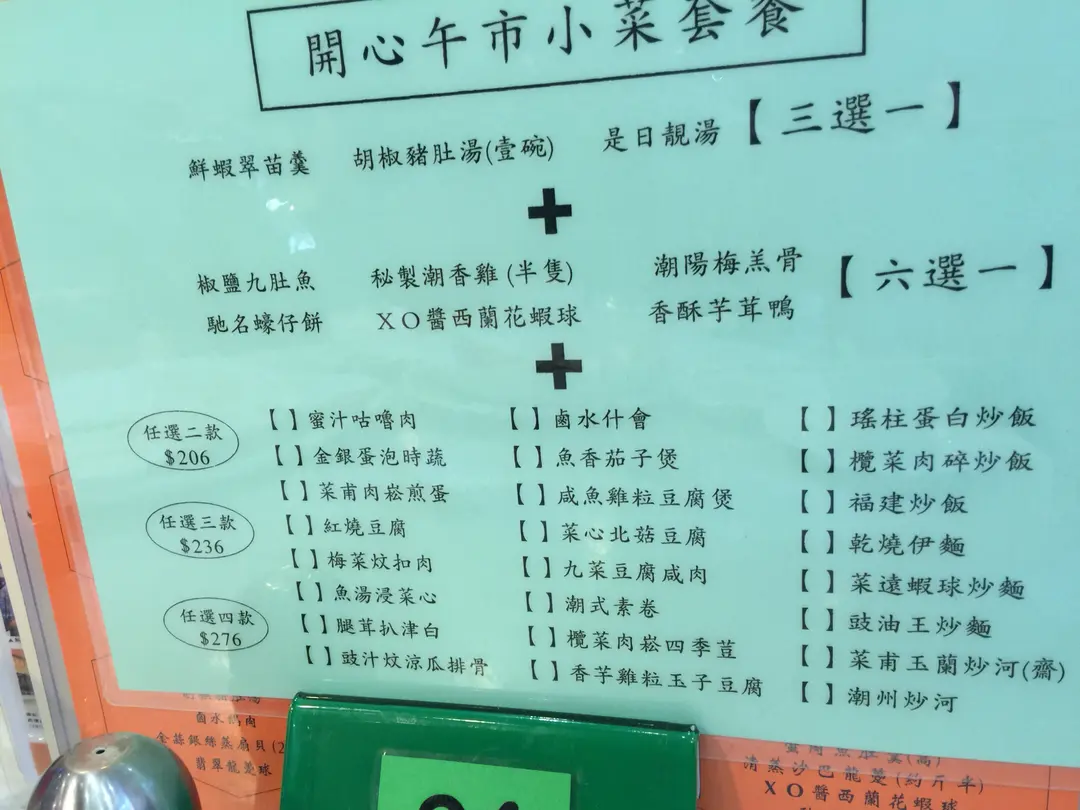 開心午市小菜套餐
鮮蝦翠苗羹 胡椒豬肚湯(壹碗) 是日靚湯【三選一】
+
椒鹽九肚魚 秘製潮香雞(半隻) 潮陽梅羔骨
【六選一】
馳名蠔仔餅 XO醬西蘭花蝦球 香酥芋茸鴨
+
任選二款
$206
任選三款
$236
任選四款
$276
【 】蜜汁咕嚕肉
【 】金銀蛋泡時蔬
【 】菜甫肉崧煎蛋
【 】紅燒豆腐
【 】梅菜炆扣肉
【 】魚湯浸菜心
【 】腿茸扒津白
【 】豉汁炆涼瓜排骨
【 】鹵水什會
【 】魚香茄子煲
【 】咸魚雞粒豆腐煲
【 】菜心北菇豆腐
【 】九菜豆腐咸肉
【 】潮式素卷
【 】欖菜肉崧四季荳
【 】香芋雞粒玉子豆腐
【 】瑤柱蛋白炒飯
【 】欖菜肉碎炒飯
【 】福建炒飯
【 】乾燒伊麵
【 】菜遠蝦球炒麵
【 】豉油王炒麵
【 】菜甫玉蘭炒河(齋)
【 】潮州炒河
鹵水鵝肉
金蒜銀絲蒸扇貝(2
翡翠龍躉球
清蒸沙巴龍躉(約斤半)
XO醬西蘭花蝦球